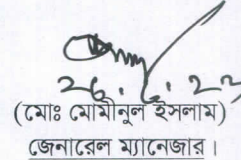 26.6.23
(মোঃ মোমীনুল ইসলাম)
জেনারেল ম্যানেজার।